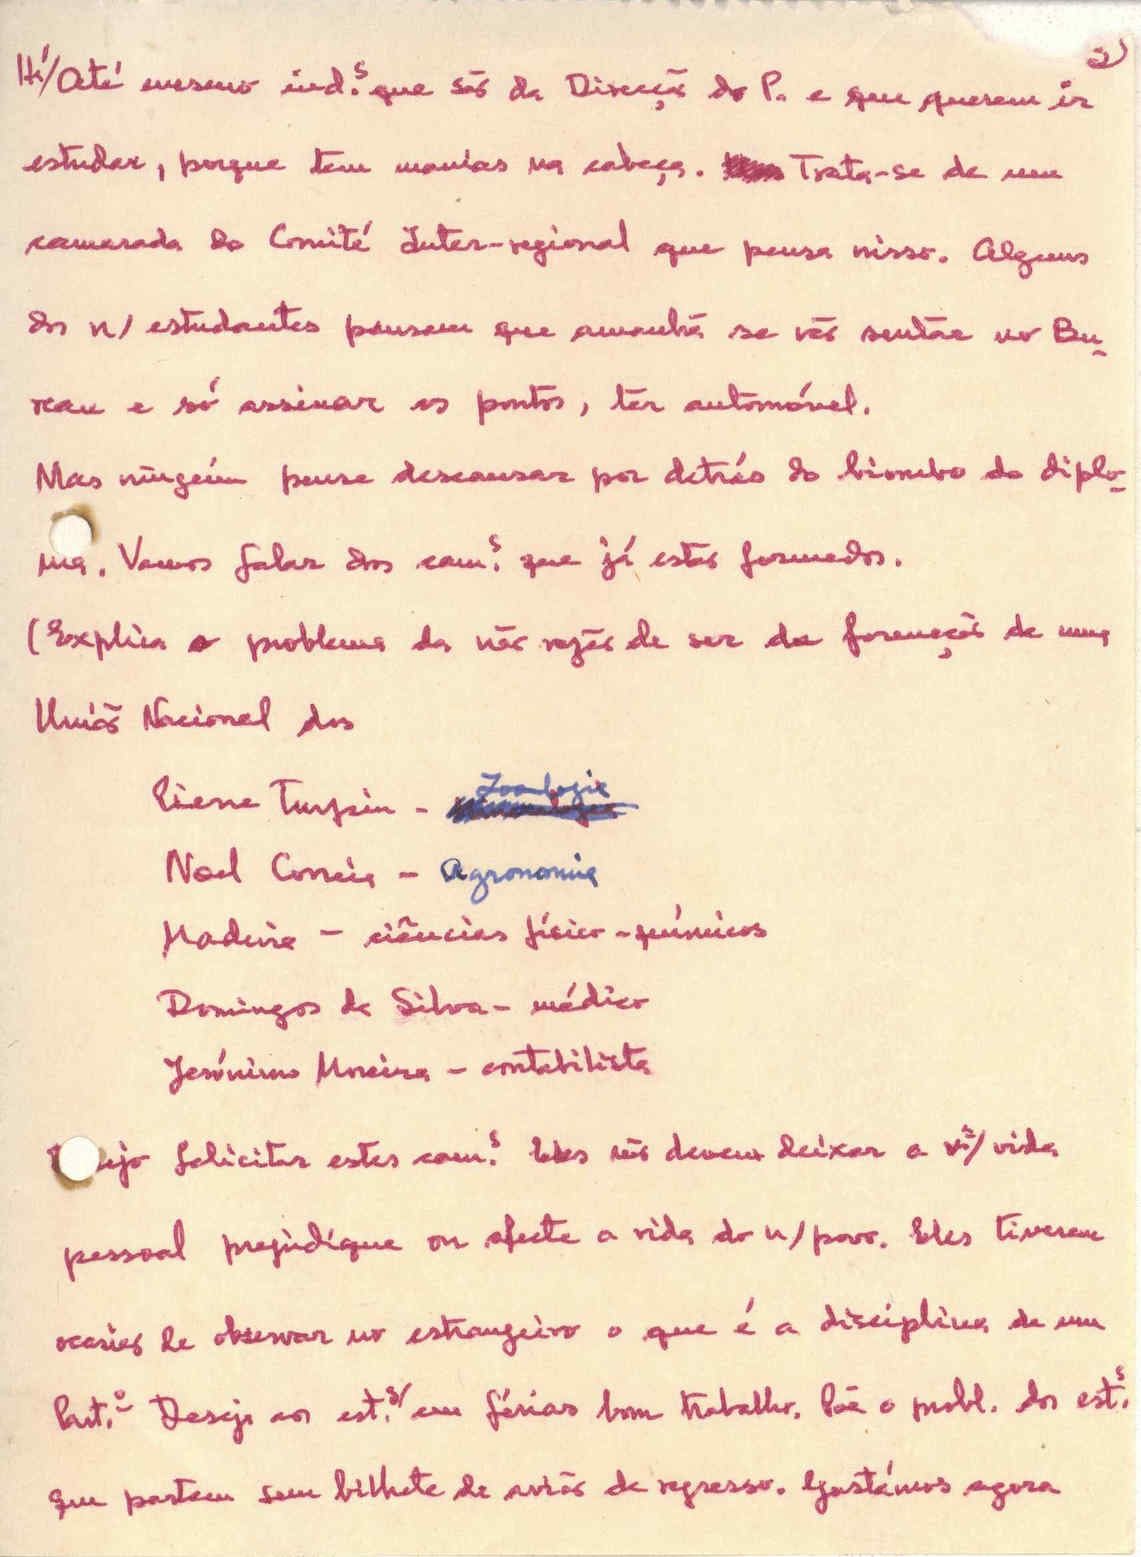 2)
Há/Até mesmo ind.s que são da Direcção do P. e que querem ir
estudar, porque tem manias na cabeça. Trata-se de um
camarada do Comité Inter-regional que pensa nisso. Alguns
dos n/ estudantes pensam que amanhã se vão sentar no Bu-
reau e só assinar os pontos, ter automóvel.
Mas ninguém pense descansar por detrás do biombo do diplo-
ma. Vamos falar dos cam.s que já estão formados.
(Explica o problema da não razão de ser da formação de uma
União Nacional dos
Pierre Turpin - Zoologie
Noel Correia - Agronomia
Madeira - ciências físico-químicas
Domingos da Silva - médico
Jerónimo Moreira - contabilista
ejo felicitar estes cam.s Eles não devem deixar a vida
pessoal prejudique ou afecte a vida do n/povo. Eles tiveram
ocasião de observar no estrangeiro o que é a disciplina de um
Part.º Desejo aos est.s/ em férias bom trabalho. Põe o probl. dos est.s
que partem sem bilhete de avião de regresso. Gastámos agora